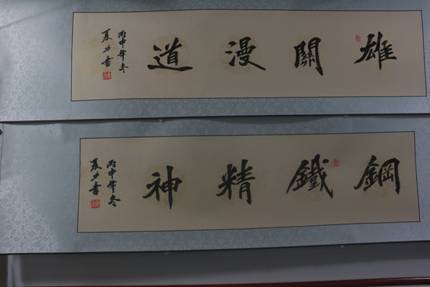 雄關漫道
丙申年冬
鋼鐵精神
丙申年冬